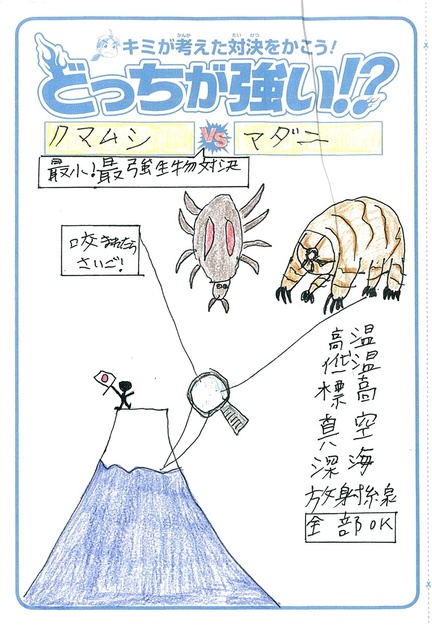 キミが考えた対決をかこう!
どっちが強い!?
クマムシ VS マダニ
最小!最強生物対決
咬まれたら
さいご!
高温
低温
標高
真空
深海
放射線
全部OK